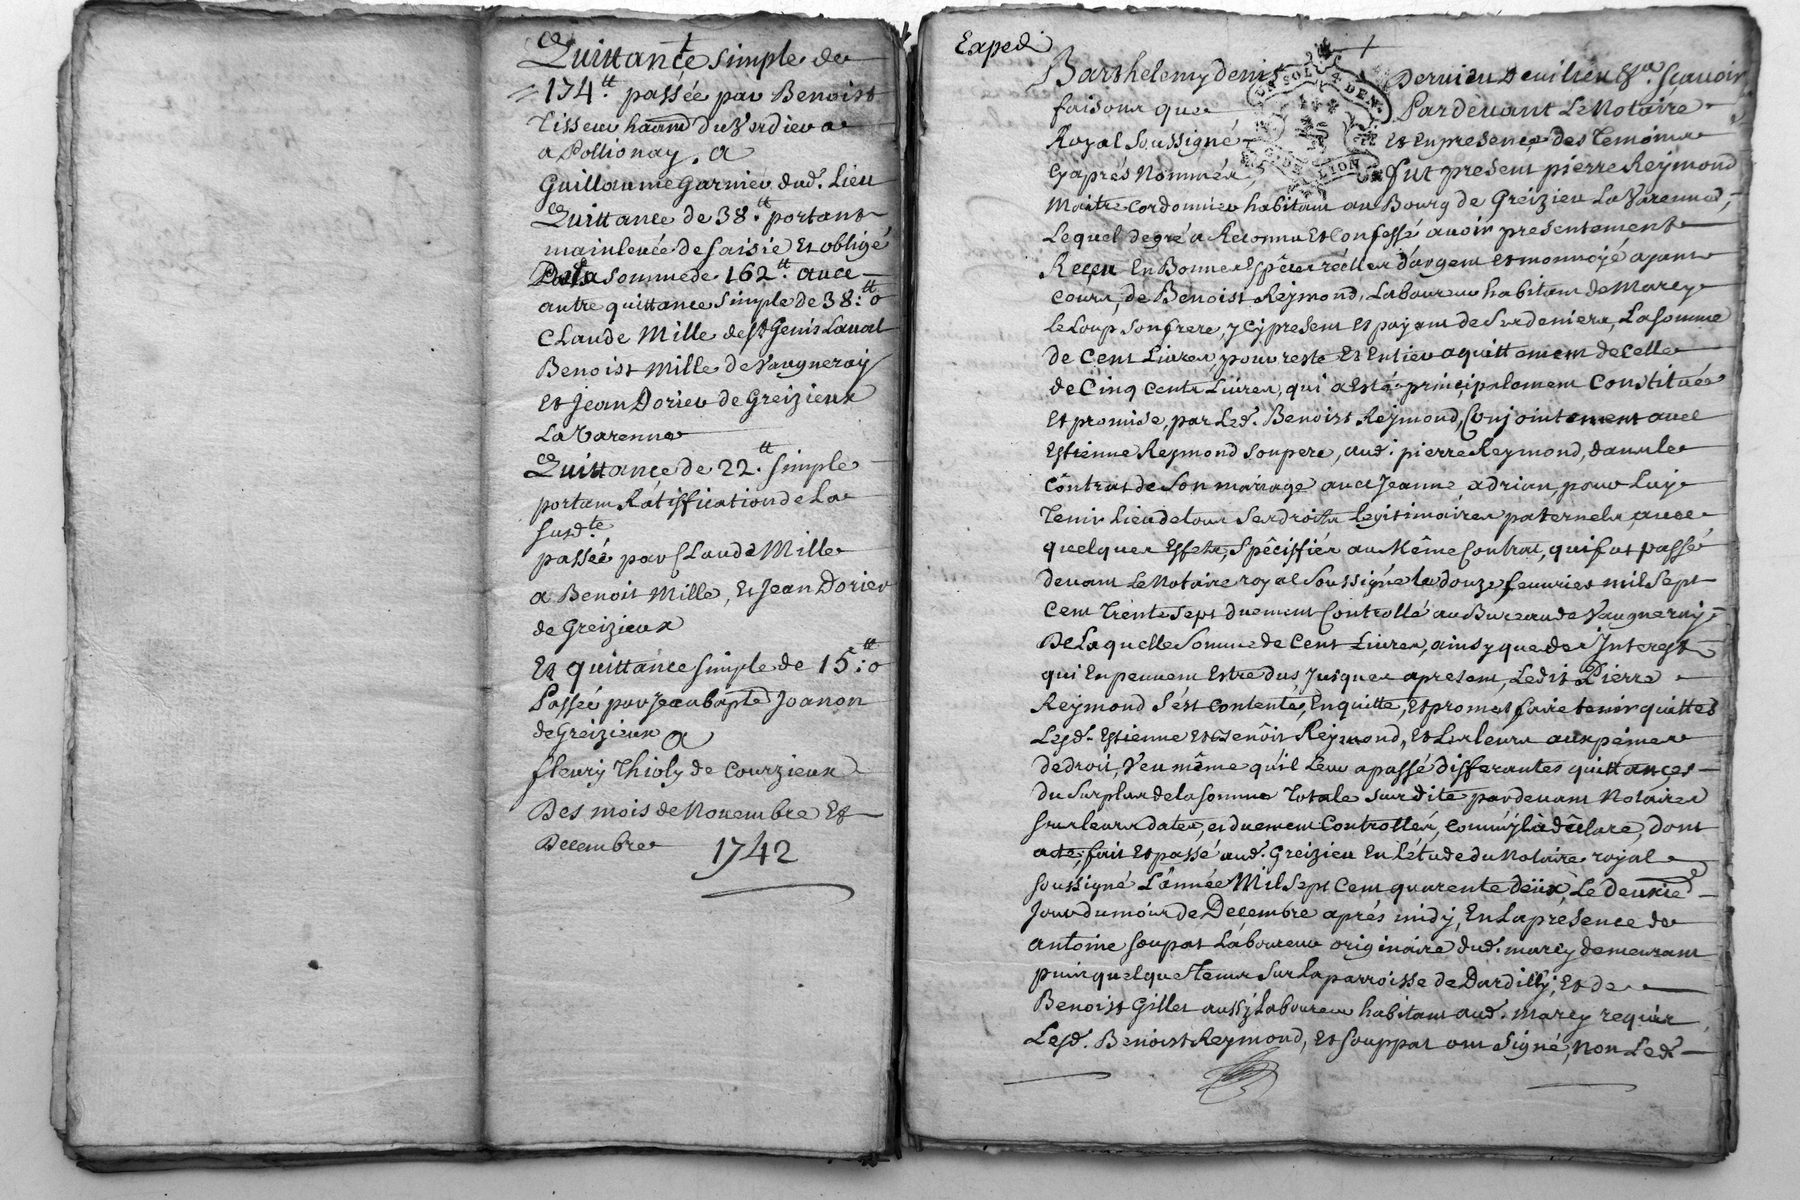 Quittance simple de
174tt. passée par Benoist
Tisseur habitant du Verdier
a Pollionay, a
Guillaume Garnier dud. Lieu
Quittance de 38tt. portant
mainlevée de saisie et obligé
De la somme de 162tt. avec
autre quittance simple de 38tt.: o
Claude Mille de St Genis Laval
Benoist Mille de Vaugneray
et Jean Dorier de Greizieux
La Varenne
Quittance de 22tt. simple
portant Ratiffication de La
susd.te
passée par Claude Mille
a Benoit Mille, et Jean Dorier
de Greizieux
Et quittance simple de 15tt: o
Passée par Jean bapte Joanon
de Greizieux a
fleury Thioly de Courzieux
Des mois de Novembre Et
Decembre 1742
Exped.
Barthelemy denis Dervieu Devilieu &a. sçavoir
faisons que Pardevant Le Notaire
Royal Soussigné et en presence des Temoins
Cy aprés Nommés, fut present pierre Reymond
Maitre cordonnier habitant au Bourg de Greizieu La Varenne,
Lequel de gré a Reconnu et Confessé avoir presentement
Reçeu En Bonnes Espêces reelles d'argent et monnoyé ayant
cours, de Benoist Reymond, Laboureur habitant de Marcy
le Loup son frere, y Cy present et payant de ses deniers, La somme
de Cent Livres, pour reste et Entier aquittement de Celle
de Cinq Cents Livres, qui a esté principalement Constituée
et promise, par Led. Benoist Reymond, Conjointement avec
Estienne Reymond son pere, aud. pierre Reymond, dans le
côntrat de son mariage avec Jeanne adrian, pour Luy
Tenir Lieu de tous ses droits legitimaires paternels, avec
quelques Effets, Spêciffiés au Même Contrat, qui fut passé
devant Le Notaire royal Soussigné le douze fevrier mil sept
Cent Trente sept duement Controllé au Bureau de Vaugneray,
De Laquelle Somme de Cent Livres, ainsy que des Interest
qui En peuvent Estre dus Jusques apresent, Ledit Pierre
Reymond s'est contenté, En quitte, et promet faire tenir quittes
Lesd. Estienne et Benôit Reymond, et Les leurs aux peines
de droit, Veu même qu'il Leur a passé differantes quittances
du Surplus de la somme Totale Susdite pardevant Notaires
sous leurs dates, et duement Controllés, comm'il à dêclaré, dont
acte, fait et passé aud. Greizieu En L'étude du Notaire royal
soussigné L'année Mil sept cent quarente deüx Le deuxie
Jour du mois de Decembre aprés midy, En La présence de
antoine soupat Laboureur originaire dud. marcy demeurant
puis quelque Tems sur La parroisse de Dardilly, et de
Benoist Gillet aussy Laboureur habitant aud. marcy requis
Lesd. Benoist Reymond, et Souppat ont signé, non Led.